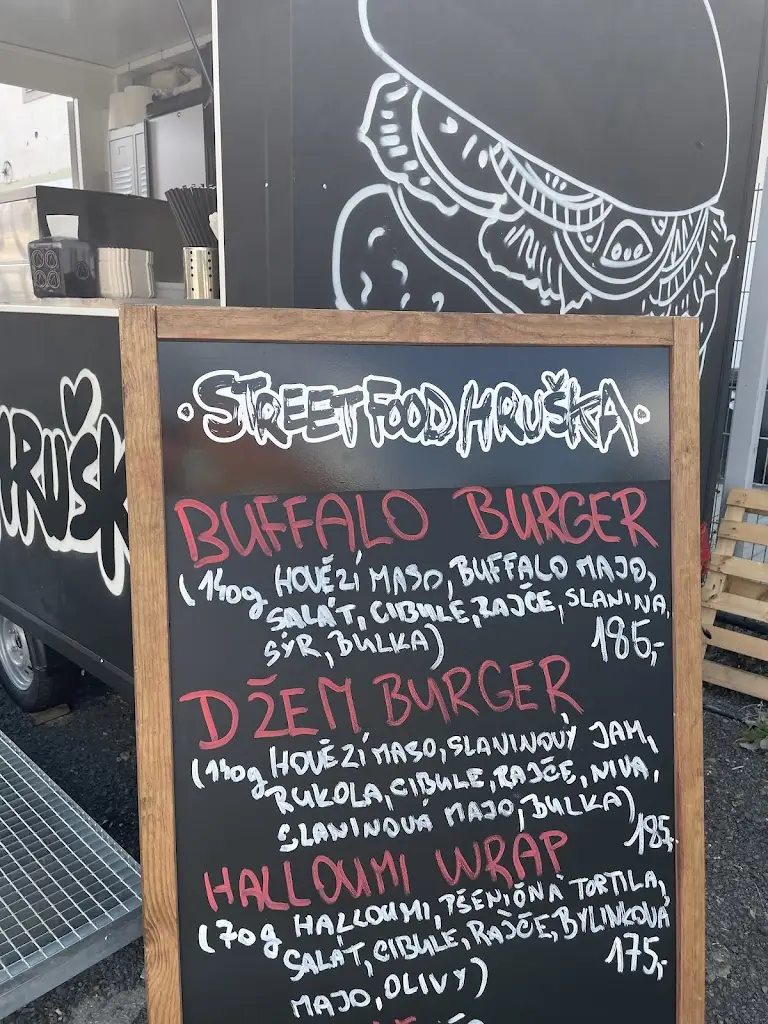 HRUŠK
·STREET FOOD HRUŠKA·
BUFFALO BURGER
(140g HOVĚZÍ MASO, BUFFALO MAJO,
SALÁT, CIBULE, RAJČE, SLANINA,
SÝR, BULKA) 185,-
DŽEM BURGER
(140g HOVĚZÍ MASO, SLANINOVÝ JAM,
RUKOLA, CIBULE, RAJČE, NIVA,
SLANINOVÁ MAJO, BULKA) 185,-
HALLOUMI WRAP
(70g HALLOUMI, PŠENIČNÁ TORTILA,
SALÁT, CIBULE, RAJČE, BYLINKOVÁ
MAJO, OLIVY) 175,-